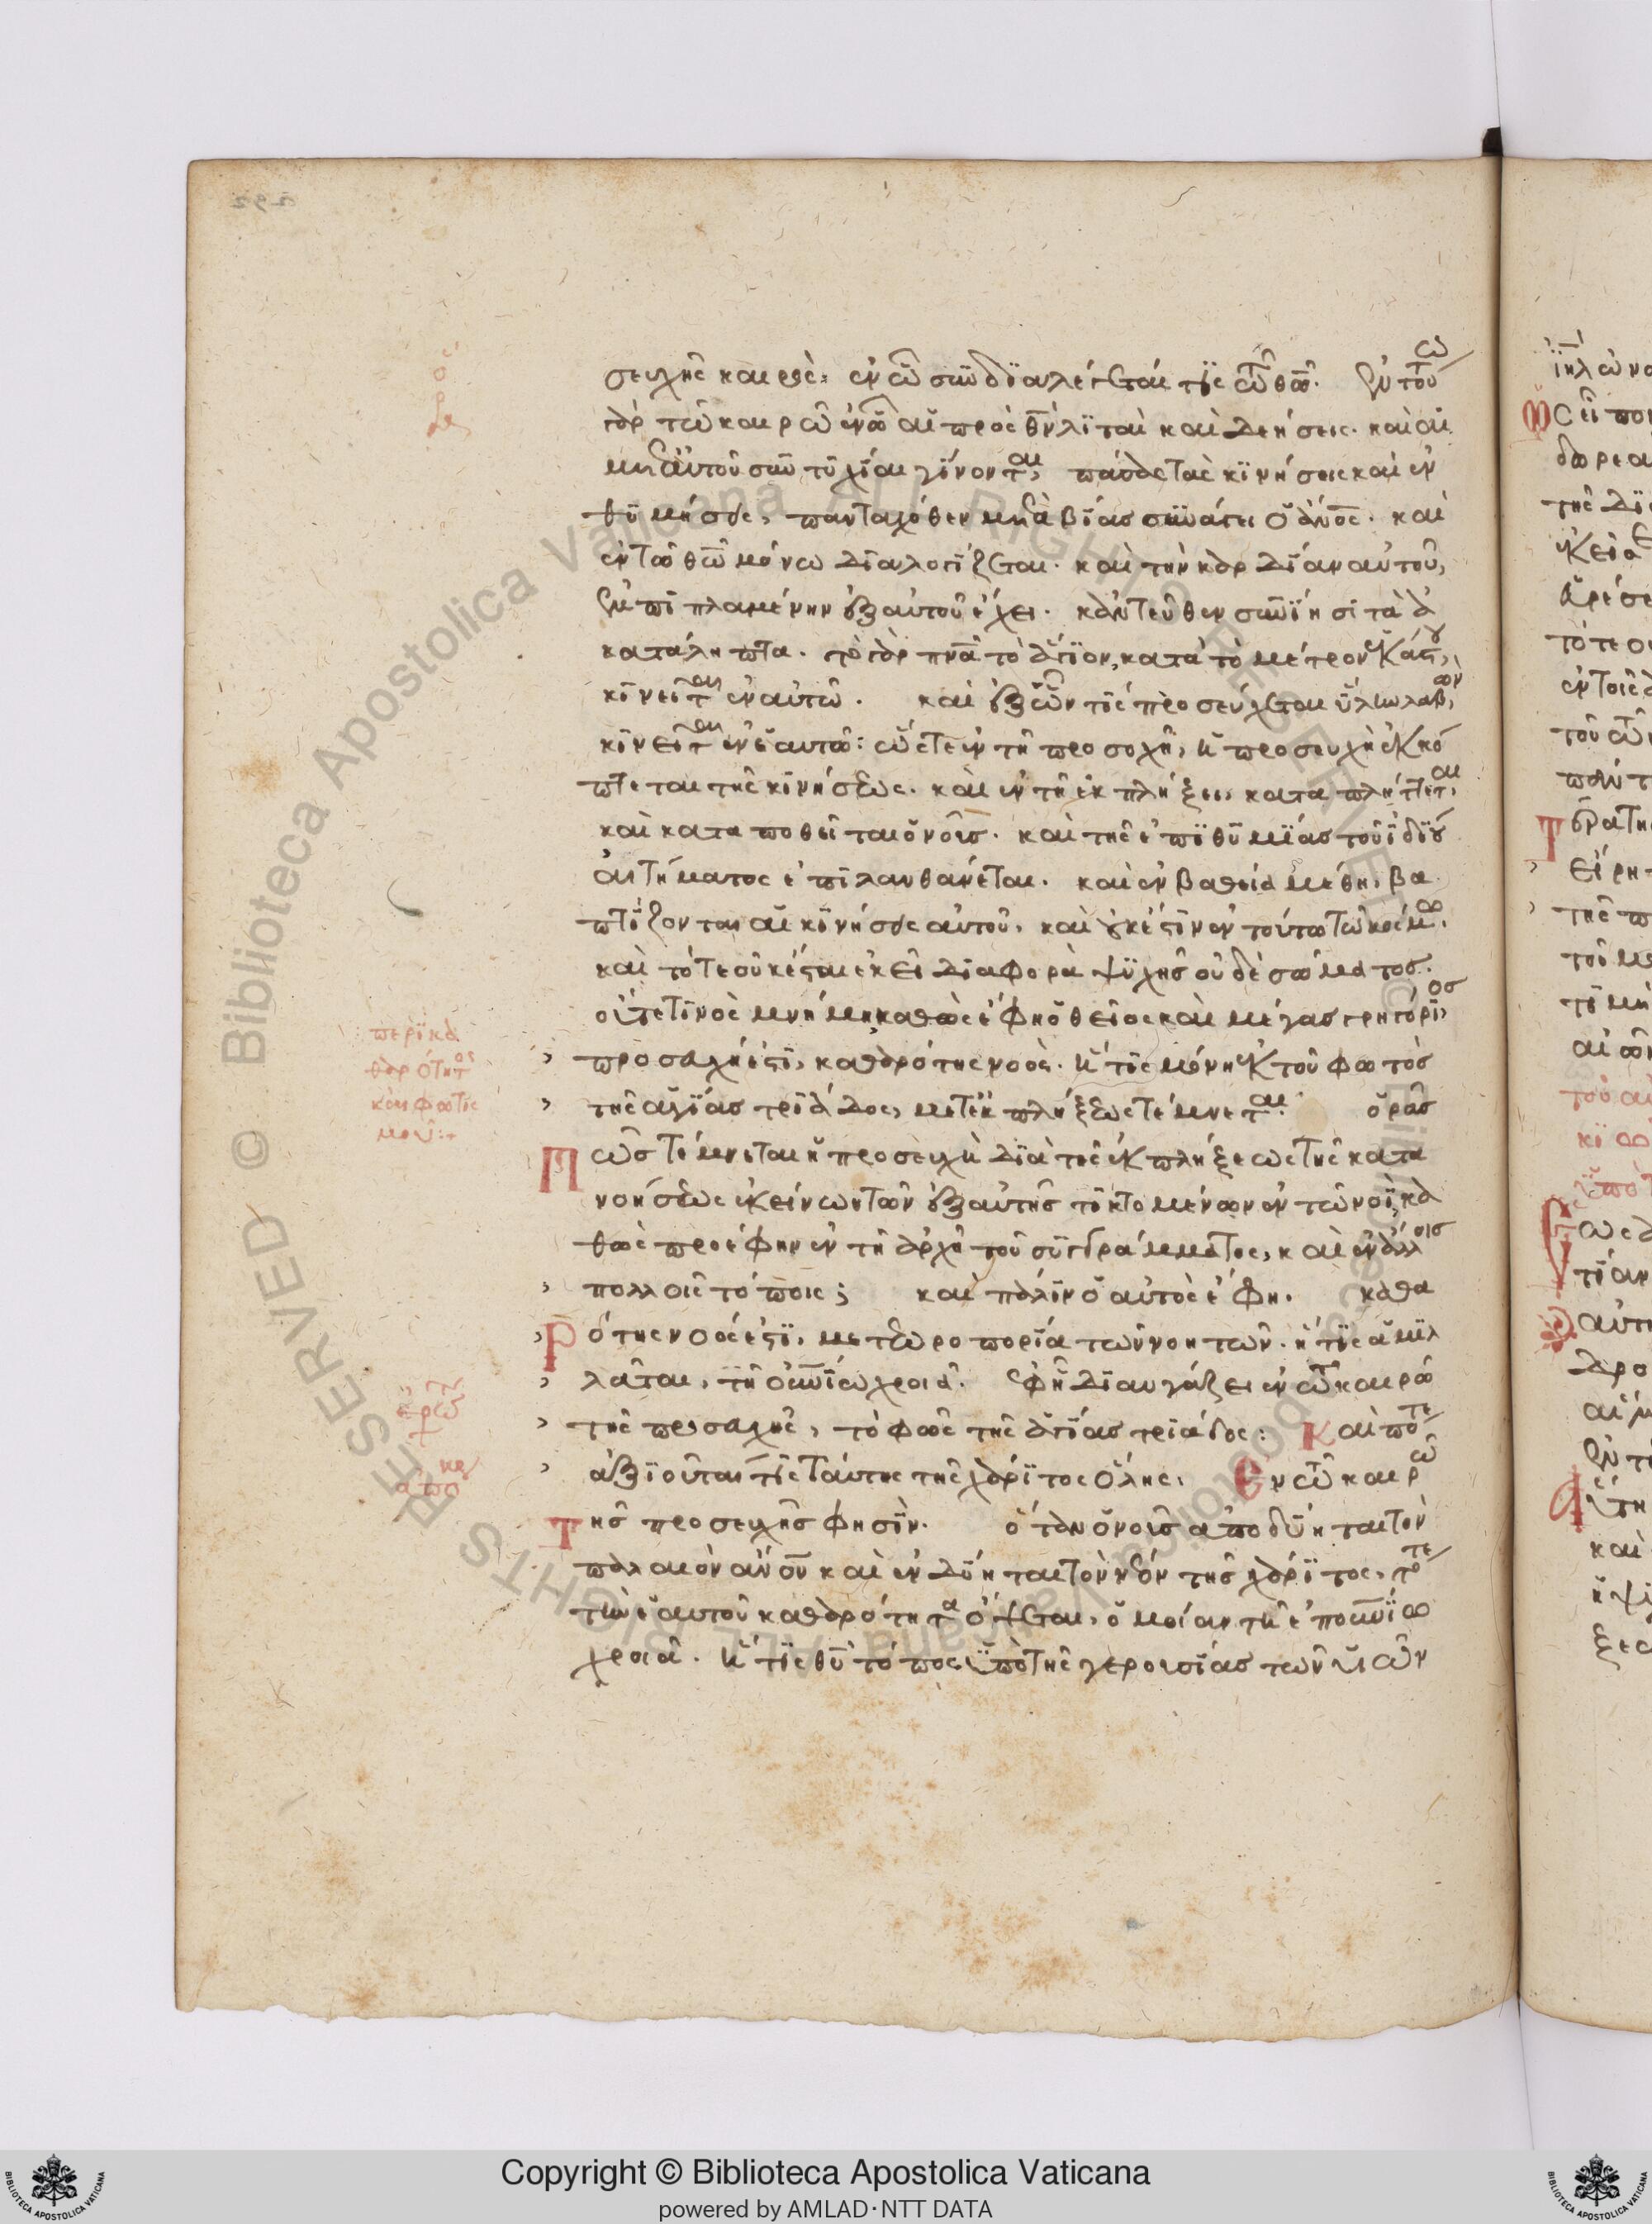 σευχῆς καιρός· ἐν ὧ συνδιαλέγεται τίς τῶ θῶ. ἐν τούτω
γὰρ τῶ καιρῶ ἐν ὧ αἱ πρὸς θν λιταὶ καὶ δεήσεις. καὶ αἱ
μετ' αὐτοῦ συντυχίαι γίνονται, πάσας τὰς κινήσεις καὶ ἐν
θυμήσεις, πανταχόθεν μετὰ βίας συνάγει ὁ ἄνος. καὶ
ἐν τῶ θῶ μόνω διαλογίζεται. καὶ τὴν καρδίαν αὐτοῦ,
ἐμπιπλαμένην ἐξ αὐτοῦ ἔχει. κἀντεῦθεν συνίησι τὰ ἀ
κατάληπτα. τὸ γὰρ πνα τὸ ἅγιον, κατὰ τὸ μέτρον ἑκάστου,
κινεῖται ἐν αὐτῶ. καὶ ἐξ ὧν τίς προσεύχεται ὕλην λαβὸν,
κινεῖται ἐν ἑαυτῶ: ὥστε ἐν τῆ προσοχῆ, ἡ προσευχὴ ἐκκό
πτεται τῆς κινήσεως. καὶ ἐν τῆ ἐκπλήξει, καταπλήττεται,
καὶ καταποθεῖται ὁ νοῦς. καὶ τῆς ἐπιθυμίας τοῦ ἰδίου
αἰτήματος ἐπιλανθάνεται. καὶ ἐν βαθεία μέθη, βα
πτίζονται αἱ κινήσεις αὐτοῦ, καὶ οὐκ ἔστιν ἐν τούτω τῶ κόσμω.
καὶ τότε οὐκ ἔσται ἐκεῖ διαφορὰ ψυχῆς οὐδὲ σώματος.
οὔτε τινὸς μνήμη καθὼς ἔφη ὁ θεῖος καὶ μέγας γρηγόριος,
προσευχή ἐστι, καθαρότης νοὸς. ἥ τις μόνη ἐκ τοῦ φωτὸς
τῆς ἁγίας τριάδος, μετ' ἐκπλήξεως τέμνεται. ὁρᾶς
Πῶς τέμνεται ἡ προσευχὴ διὰ τῆς ἐκπλήξεως τῆς κατα
νοήσεως ἐκείνων τῶν ἐξ αὐτῆς τικτομένων ἐν τῶ νοὶ, κα
θὼς προέφην ἐν τῆ ἀρχῆ τοῦ συγγράμματος, καὶ ἐν ἄλλοις
πολλοῖς τόποις; καὶ πάλιν ὁ αὐτὸς ἔφη. καθα
Ρότης νοός ἐστι, μετεωροπορία τῶν νοητῶν. ἥ τις ἁμιλ
λᾶται, τῆ οὐνίω χροιᾶ. ἐφ' ἧ διαυγάζει ἐν τῶ καιρῶ
τῆς προσευχῆς, τὸ φῶς τῆς ἁγίας τριάδος: Καὶ πότε
ἀξιοῦται τίς ταύτης τῆς χάριτος ὅλης. Ἐν τῶ καιρῶ
Τῆς προσευχῆς φησὶν. ὅταν ὁ νοῦς ἀποδύηται τὸν
παλαιὸν ἄνον καὶ ἐνδύηται τὸν νέον τῆς χάριτος, τότε
τὴν ἑαυτοῦ καθαρότητα ὄψεται, ὁμοίαν τῆ ἐπουνίω
χροιᾶ. ἥ τις θυ τόπος ὑπὸ τῆς γερουσίας τῶν υἱῶν
περὶ κα
θαρότητος
καὶ φωτις
μοῦ:+
ἐρώ
ἀπο